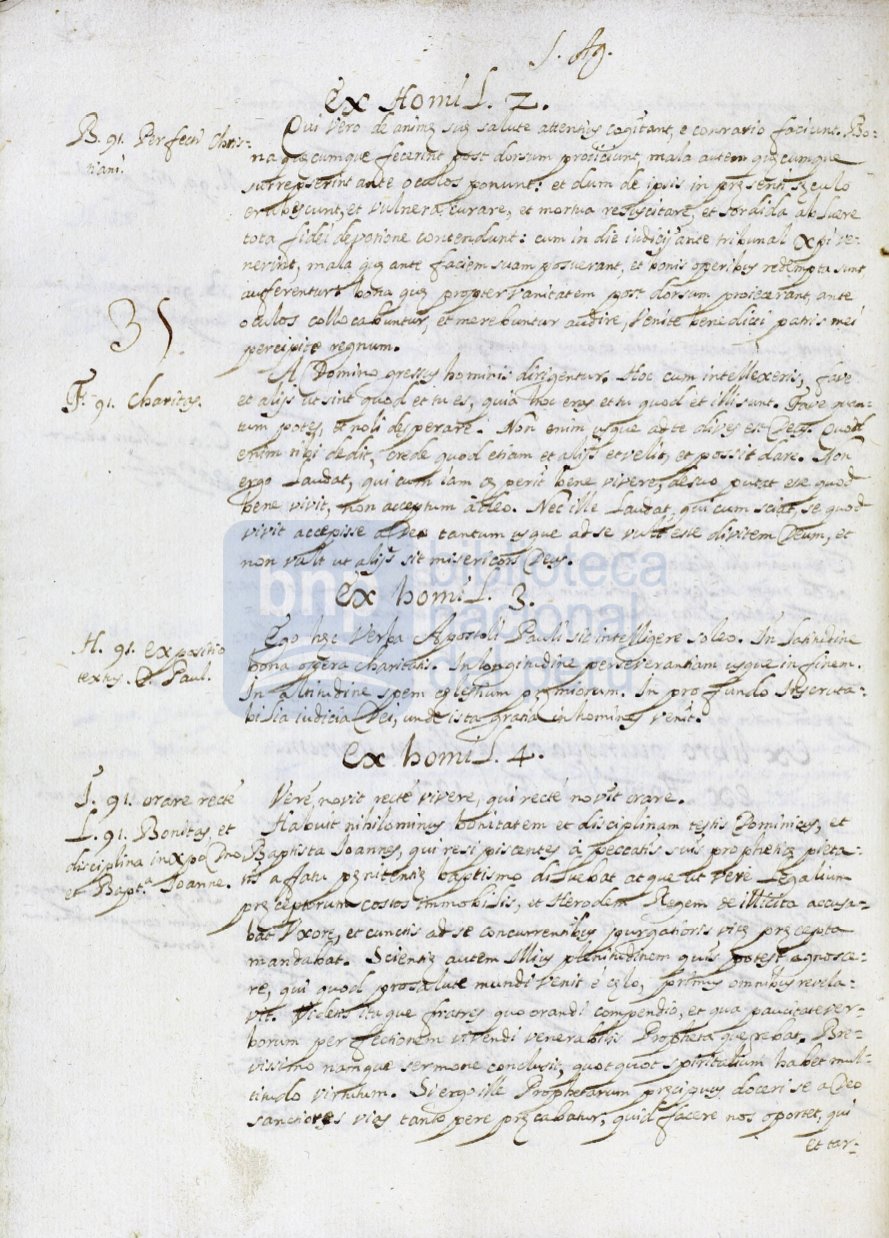 S. Ag.
Ex Homil. 2.
B. 91. Perfecti Chris-
tiani.
Qui vero de animę suę salute attentius cogitant, e contrario faciunt. Bo-
na quęcumque fecerint post dorsum proijciunt, mala autem quęcumque
surrepserint ante oculos ponunt: et dum de ipsis in pręsenti sęculo
erubescunt, et vulnera curare, et mortua resuscitare, et sordida abluere
tota fidei devotione contendunt: cum in die iudicij ante tribunal Xpi ve-
nerint, mala quę ante faciem suam posuerant, et bonis operibus redempta sunt
aufferentur: bona quę propter vanitatem post dorsum proiecerant, ante
oculos collocabuntur, et merebuntur audire, Venite benedicti patris mei
percipite regnum.
35
F. 91. Charitas.
A Domino gressus hominis dirigentur. Hoc cum intellexeris, fave
et alijs ut sint quod et tu es, quia hoc eras et tu quod et illi sunt. Fave quan-
tum potes, et noli desperare. Non enim usque ad te dives est Deus. Quod
enim tibi dedit, crede quod etiam et alijs et velit, et possit dare. Non
ergo Laudat, qui cum iam cęperit bene vivere, de suo putat esse quod
bene vivit, non acceptum a Deo. Nec ille Laudat, qui cum sciat, se quod
vivit accepisse a Deo tantum usque ad se vult esse divitem Deum, et
non vult ut alijs sit misericors Deus.
Ex homil. 3.
H. 91. expositio
textus. D. Paul.
Ego hęc Verba Apostoli Pauli sic intelligere soleo. In latitudine
bona opera charitatis. In longitudine perseverantiam usque in finem.
In altitudine spem cęlestium pręmiorum. In profundo inscruta-
bilia iudicia Dei, unde ista gratia in homines venit.
Ex homil. 4.
I. 91. orare recté
Veré novit recté vivere, qui recté novit orare.
L. 91. Bonitas, et
disciplina in Xpo Dno
et Bapt.a Joanne.
Habuit nihilominus bonitatem et disciplinam testis Dominicus, et
Baptista Joannes, qui resipiscentes à peccatis suis propheticę pieta-
tis afatu pęnitentię baptismo diluebat atque ut vere Legalium
pręceptorum costos immobilis, et Herodem Regem de illicita accusa-
bat Uxore, et cunctis ad se concurrentibus purgatioris vitę pręcepta
mandabat. Scientię autem illius plenitudinem quis potest agnosce-
re, qui quod pro salute mundi venit é cęlo, primus omnibus revela-
vit. Videtis itaque fratres quo orandi compendio, et qua paucitate ver-
borum perfectionem vivendi venerabilis Propheta quęrebat. Bre-
vissimo namque sermone conclusit, quotquot spiritalium habet mul-
titudo virtutum. Si ergo ille Prophetarum pręcipuus doceri se a Deo
sanctiores vias tanto pere pręcabatur, quid facere nos oportet, qui
et tar-
bnp biblioteca
nacional
del perú